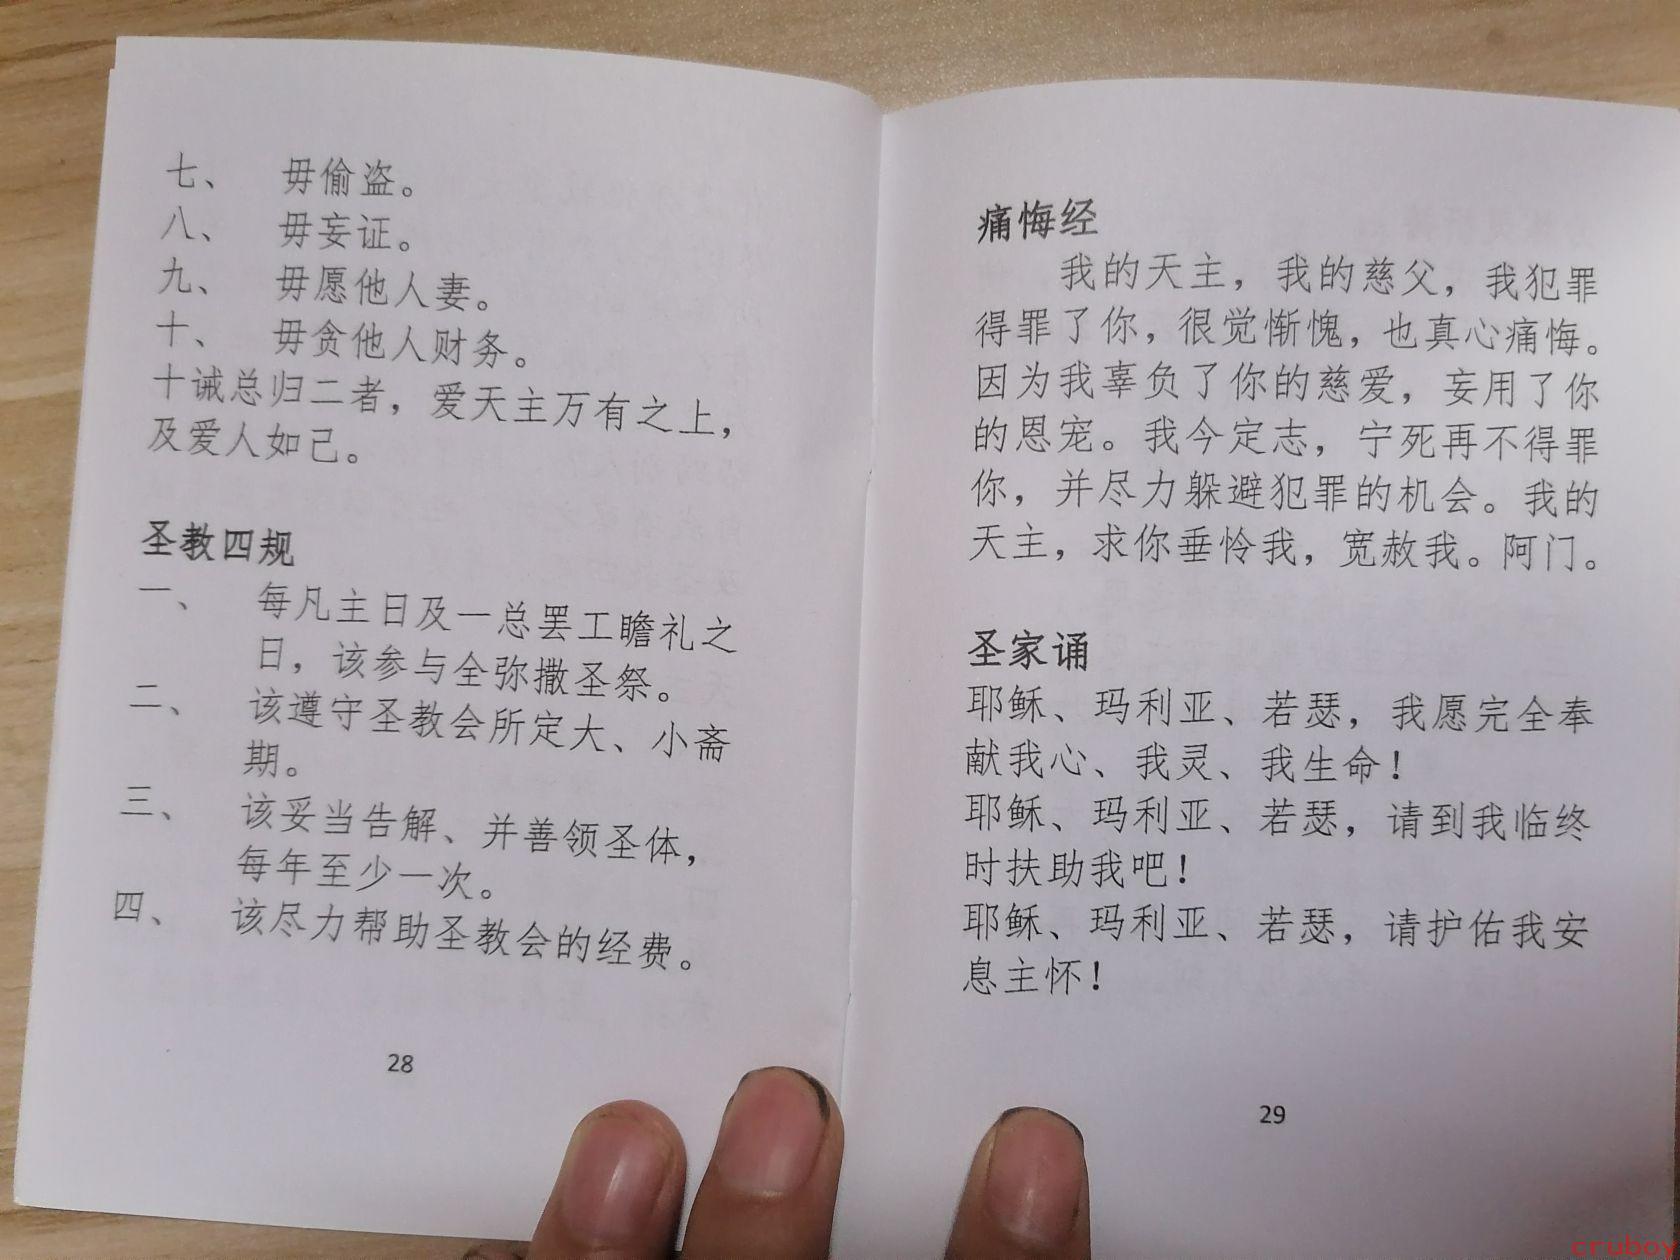 七、 毋偷盗。
八、 毋妄证。
九、 毋愿他人妻。
十、 毋贪他人财务。
十诫总归二者，爱天主万有之上，
及爱人如己。
圣教四规
一、 每凡主日及一总罢工瞻礼之
日，该参与全弥撒圣祭。
二、 该遵守圣教会所定大、小斋
期。
三、 该妥当告解、并善领圣体，
每年至少一次。
四、 该尽力帮助圣教会的经费。
28
痛悔经
我的天主，我的慈父，我犯罪
得罪了你，很觉惭愧，也真心痛悔。
因为我辜负了你的慈爱，妄用了你
的恩宠。我今定志，宁死再不得罪
你，并尽力躲避犯罪的机会。我的
天主，求你垂怜我，宽赦我。阿门。
圣家诵
耶稣、玛利亚、若瑟，我愿完全奉
献我心、我灵、我生命！
耶稣、玛利亚、若瑟，请到我临终
时扶助我吧！
耶稣、玛利亚、若瑟，请护佑我安
息主怀！
29
cruboy